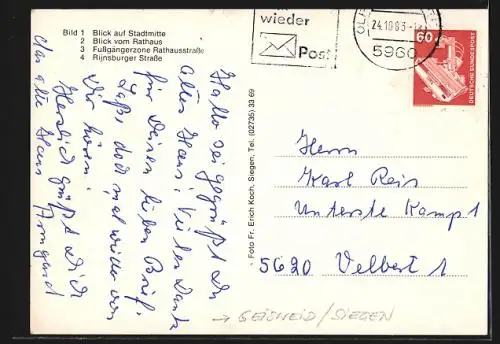 Bild 1 Blick auf Stadtmitte
2 Blick vom Rathaus
3 Fußgängerzone Rathausstraße
4 Rijnsburger Straße
wieder
Post
24.10.83
5960
60
DEUTSCHE BUNDESPOST
Hallo sei gegrüßt Du
altes Haus! Vielen Dank
für Deinen lieben Brief.
Laß doch mal wieder von
Dir hören!
Herzlich grüßt Dich
das alte Haus
Irmgard
Foto Fr. Erich Koch, Siegen, Tel. (02735) 33 69
Herrn
Karl Reis
Unterste Kampt 1
5620 Velbert 1
→ GEISWEID/SIEGEN